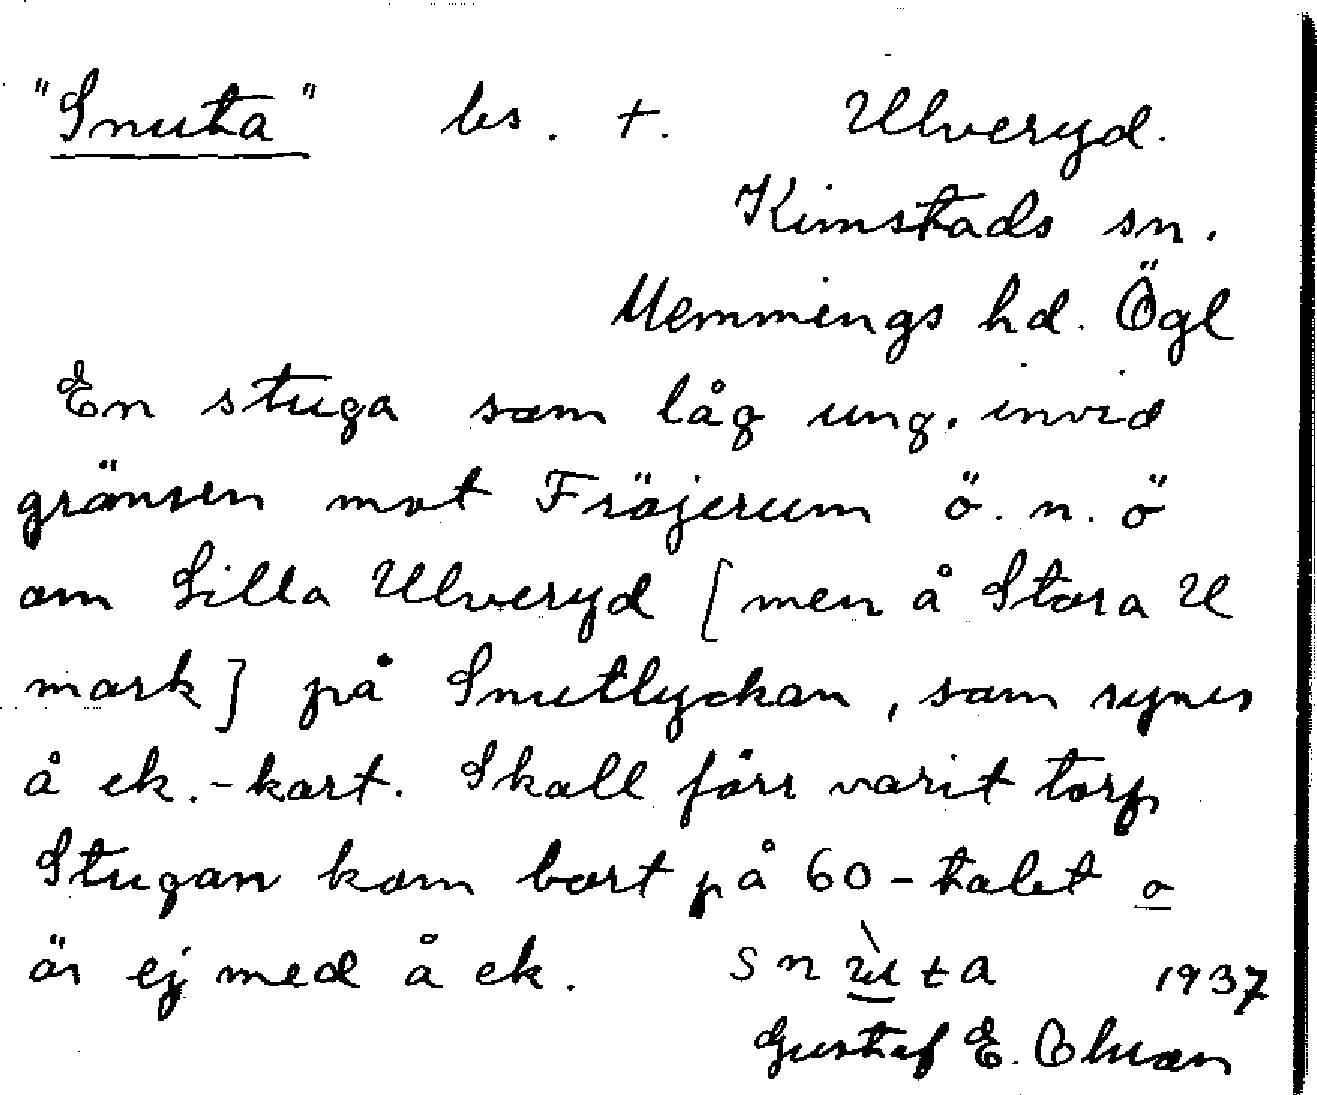 "Snuta" bs. +. Ulveryd.
Kimstads sn.
Memmings hd. Ögl
En stuga som låg ung. invid
gränsen mot Fröjerum ö. n. ö
om Lilla Ulveryd [men å Stora U
mark] på Snutlyckan, som synes
å ek.-kart. Skall förr varit torp
Stugan kom bort på 60-talet o
är ej med å ek. snùta 1937
Gustaf E.